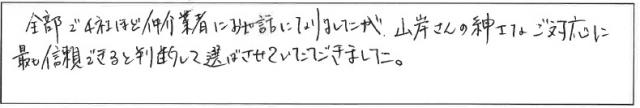 全部で4社ほど仲介業者にお世話になりましたが、山岸さんの紳士なご対応に
最も信頼できると判断して選ばさせていただきました。